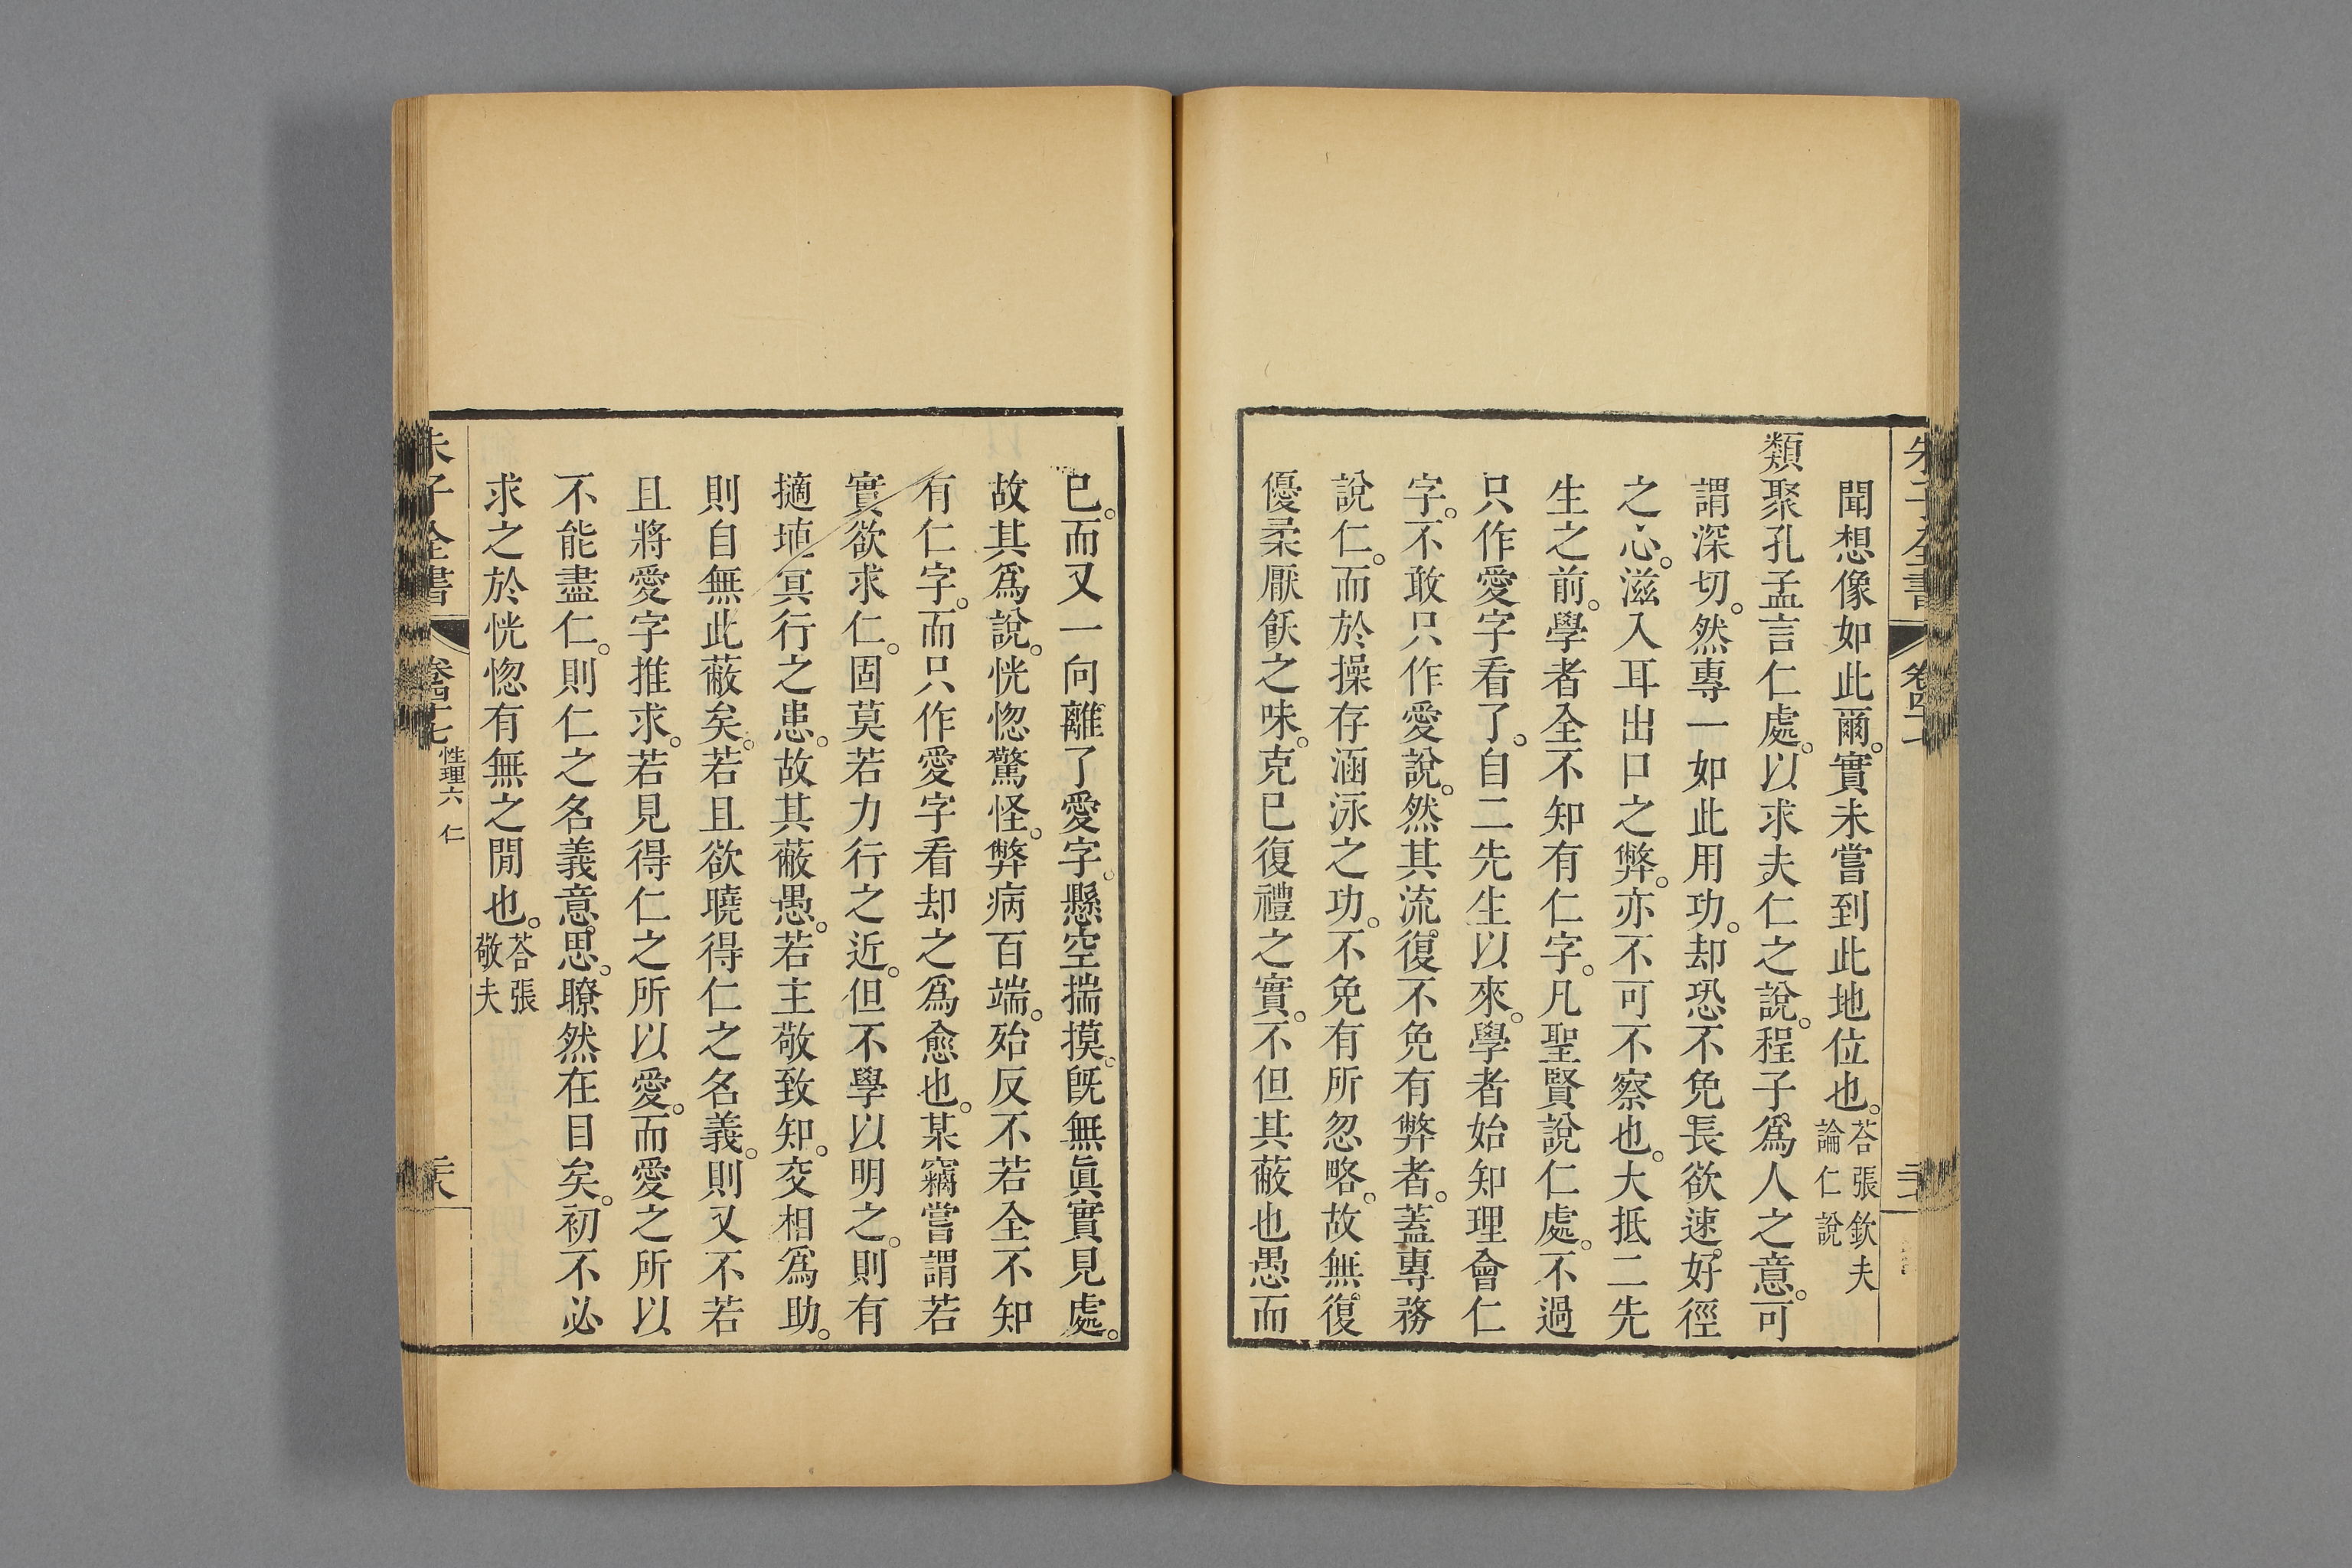 聞想像如此爾。實未嘗到此地位也。荅張欽夫論仁說
類聚孔孟言仁處。以求夫仁之說。程子爲人之意。可
謂深切。然專一如此用功。却恐不免長欲速好徑
之心。滋入耳出口之弊。亦不可不察也。大抵二先
生之前。學者全不知有仁字。凡聖賢說仁處。不過
只作愛字看了。自二先生以來。學者始知理會仁
字。不敢只作愛說。然其流復不免有弊者。蓋專務
說仁。而於操存涵泳之功。不免有所忽略。故無復
優柔厭飫之味。克已復禮之實。不但其蔽也愚而
已。而又一向離了愛字。懸空揣摸。旣無眞實見處。
故其爲說。恍惚驚怪。弊病百端。殆反不若全不知
有仁字。而只作愛字看却之爲愈也。某竊嘗謂若
實欲求仁。固莫若力行之近。但不學以明之。則有
擿埴冥行之患。故其蔽愚。若主敬致知。交相爲助。
則自無此蔽矣。若且欲曉得仁之名義。則又不若
且將愛字推求。若見得仁之所以愛。而愛之所以
不能盡仁。則仁之名義意思。瞭然在目矣。初不必
求之於恍惚有無之閒也。荅張敬夫
朱子全書 卷四十七 性理六 仁